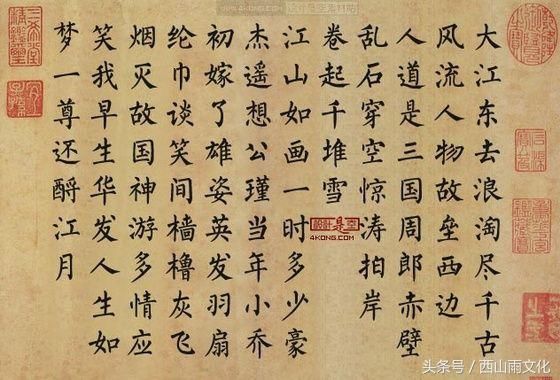 大江东去浪淘尽千古
风流人物故垒西边
人道是三国周郎赤壁
乱石穿空惊涛拍岸
卷起千堆雪
江山如画一时多少豪
杰遥想公瑾当年小乔
初嫁了雄姿英发羽扇
纶巾谈笑间樯橹灰飞
烟灭故国神游多情应
笑我早生华发人生如
梦一尊还酹江月
4KONG.COM
头条号 / 西山雨文化